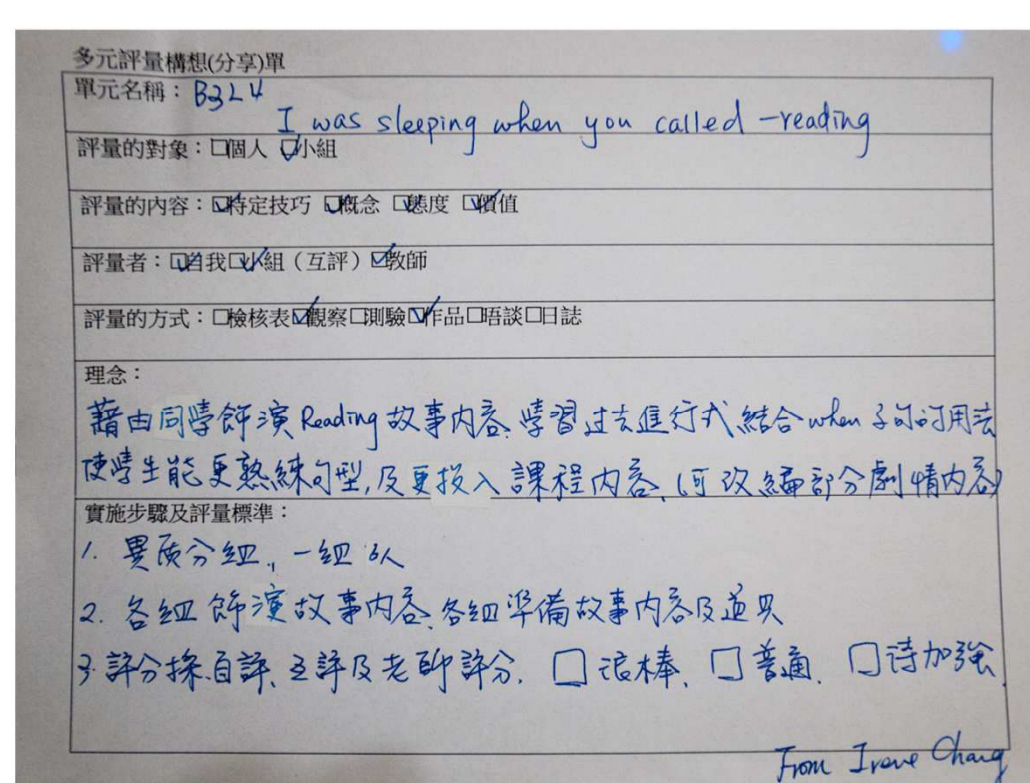 多元評量構想(分享)單
單元名稱：B3L4
I was sleeping when you called -reading
評量的對象：□個人 ☑小組
評量的內容：☑特定技巧 ☑概念 ☑態度 ☑價值
評量者：☑自我☑小組（互評）☑教師
評量的方式：□檢核表☑觀察□測驗☑作品□晤談□日誌
理念：
藉由同學飾演 Reading 故事內容、學習过去進行式結合 when 子句的用法
使學生能更熟練句型,及更投入課程內容、(可改編部分劇情內容)
實施步驟及評量標準：
1. 異质分組，一組 6人
2. 各組飾演故事內容、各組準備故事內容及道具
3. 評分採自評、互評及老師評分. □ 很棒、□ 普通、□待加強
From Irene Chang